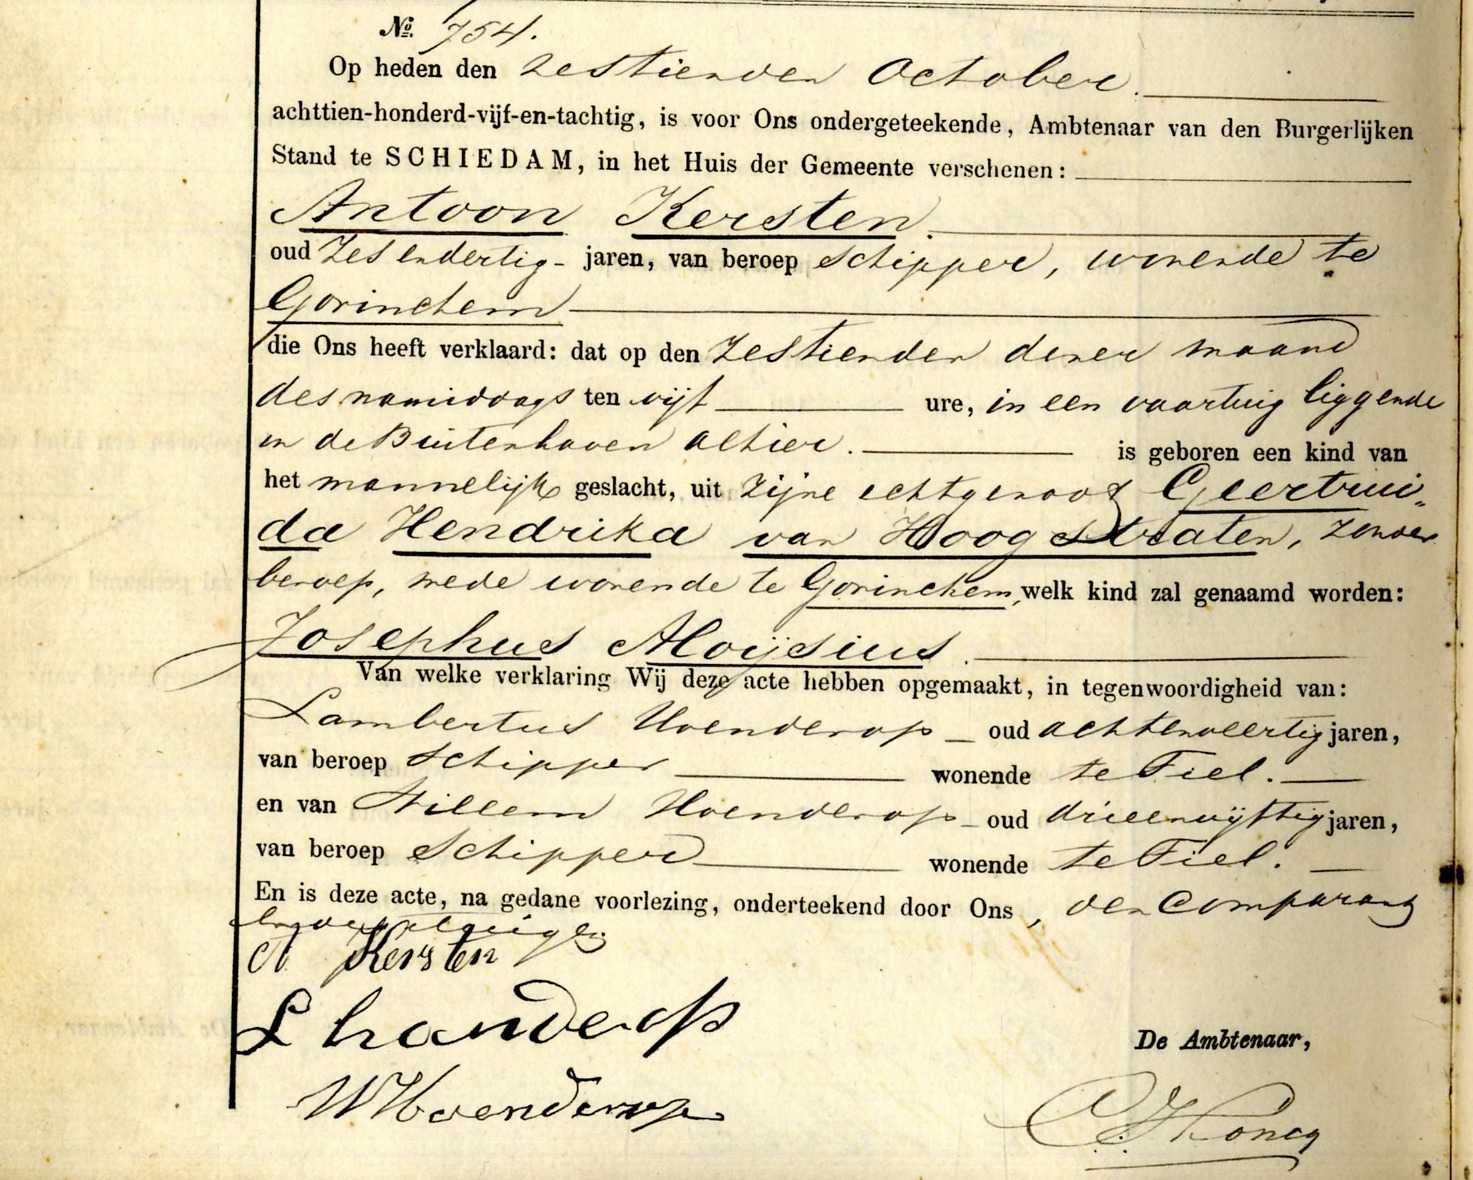 No. 754.
Op heden den zestienden October.
achttien-honderd-vijf-en-tachtig, is voor Ons ondergeteekende, Ambtenaar van den Burgerlijken
Stand te SCHIEDAM, in het Huis der Gemeente verschenen:
Antoon Kersten.
oud zesendertig jaren, van beroep schipper, wonende te
Gorinchem
die Ons heeft verklaard: dat op den zestienden dezer maand
des namiddags ten vijf ure, in een vaartuig liggende
in de Buitenhaven alhier. is geboren een kind van
het mannelijk geslacht, uit zijne echtgenoot Geertrui-
da Hendrika van Hoogstraten, zonder
beroep, mede wonende te Gorinchem, welk kind zal genaamd worden:
Josephus Aloijsius.
Van welke verklaring Wij deze acte hebben opgemaakt, in tegenwoordigheid van:
Lambertus Hoenderop oud achtenveertig jaren,
van beroep schipper wonende te Tiel.
en van Willem Hoenderop oud drieenvijftig jaren,
van beroep schipper wonende te Tiel.
En is deze acte, na gedane voorlezing, onderteekend door Ons, den Comparant
en de getuigen.
A Kersten
L hoenderop
W Hoenderop
De Ambtenaar,